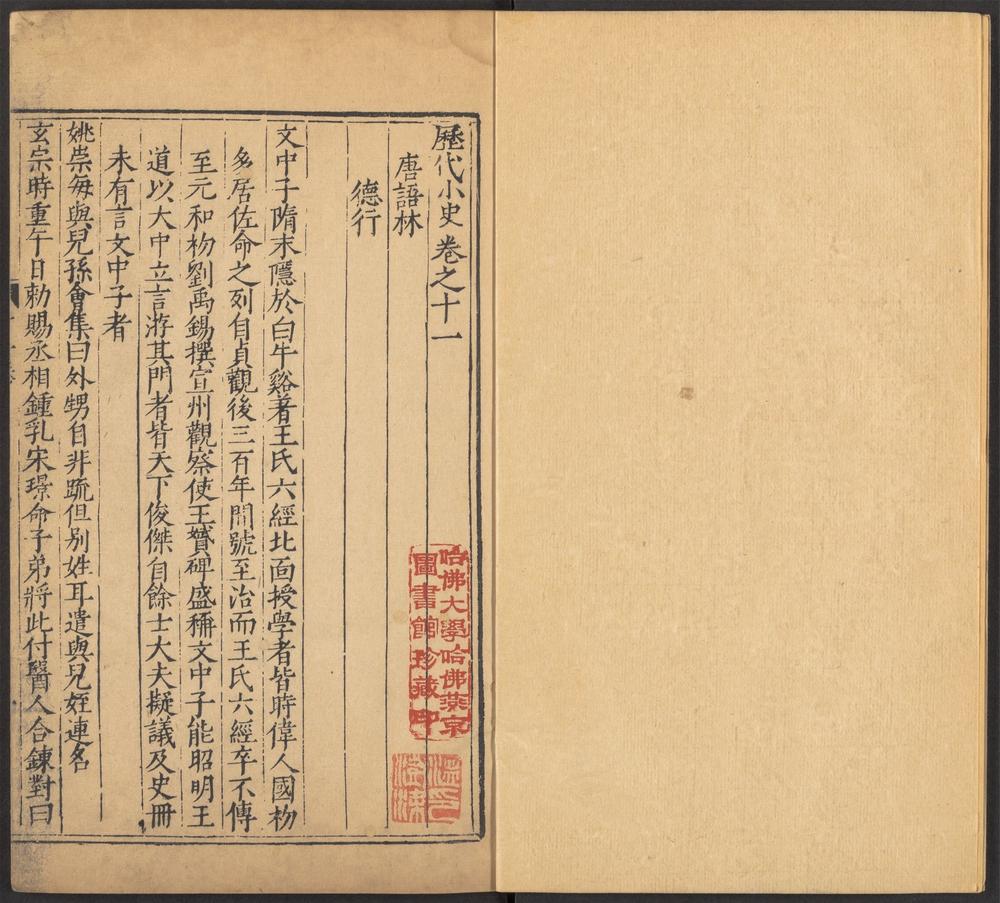 歷代小史卷之十一
唐語林
德行
文中子隋末隱於白牛谿著王氏六經北面授學者皆時偉人國初
多居佐命之列自貞觀後三百年間號至治而王氏六經卒不傳
至元和初劉禹錫撰宣州觀察使王贊碑盛稱文中子能昭明王
道以大中立言游其門者皆天下俊傑自餘士大夫擬議及史冊
未有言文中子者
姚崇每與兒孫會集曰外甥自非疏但別姓耳遣與兒姪連名
玄宗時重午日勑賜丞相鍾乳宋璟命子弟將此付醫人合鍊對曰
哈佛大學哈佛燕京
圖書館珍藏印